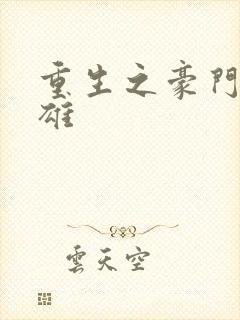 重生之豪門
雄
雲天空